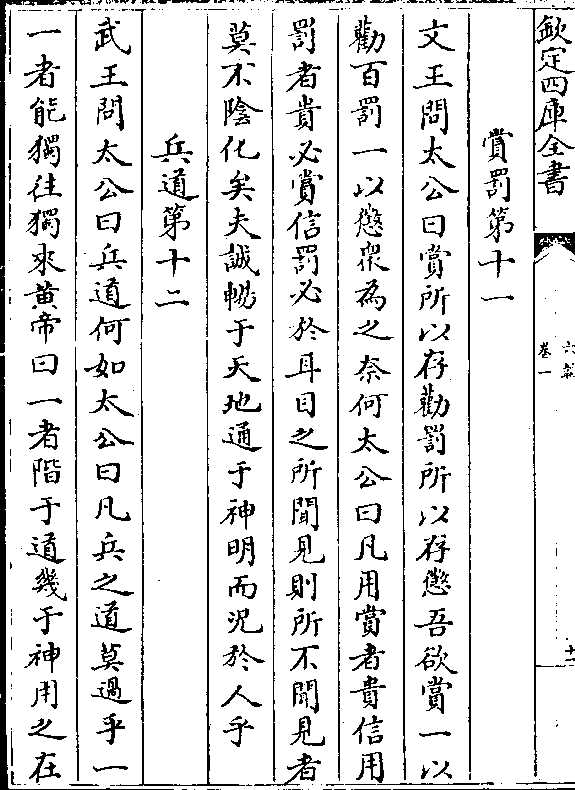 欽定四庫全書
六韜
卷一
十一
賞罰第十一
文王問太公曰賞所以存勸罰所以存懲吾欲賞一以
勸百罰一以懲衆為之奈何太公曰凡用賞者貴信用
罰者貴必賞信罰必於耳目之所聞見則所不聞見者
莫不陰化矣夫誠暢于天地通于神明而況於人乎
兵道第十二
武王問太公曰兵道何如太公曰凡兵之道莫過乎一
一者能獨往獨來黄帝曰一者階于道幾于神用之在